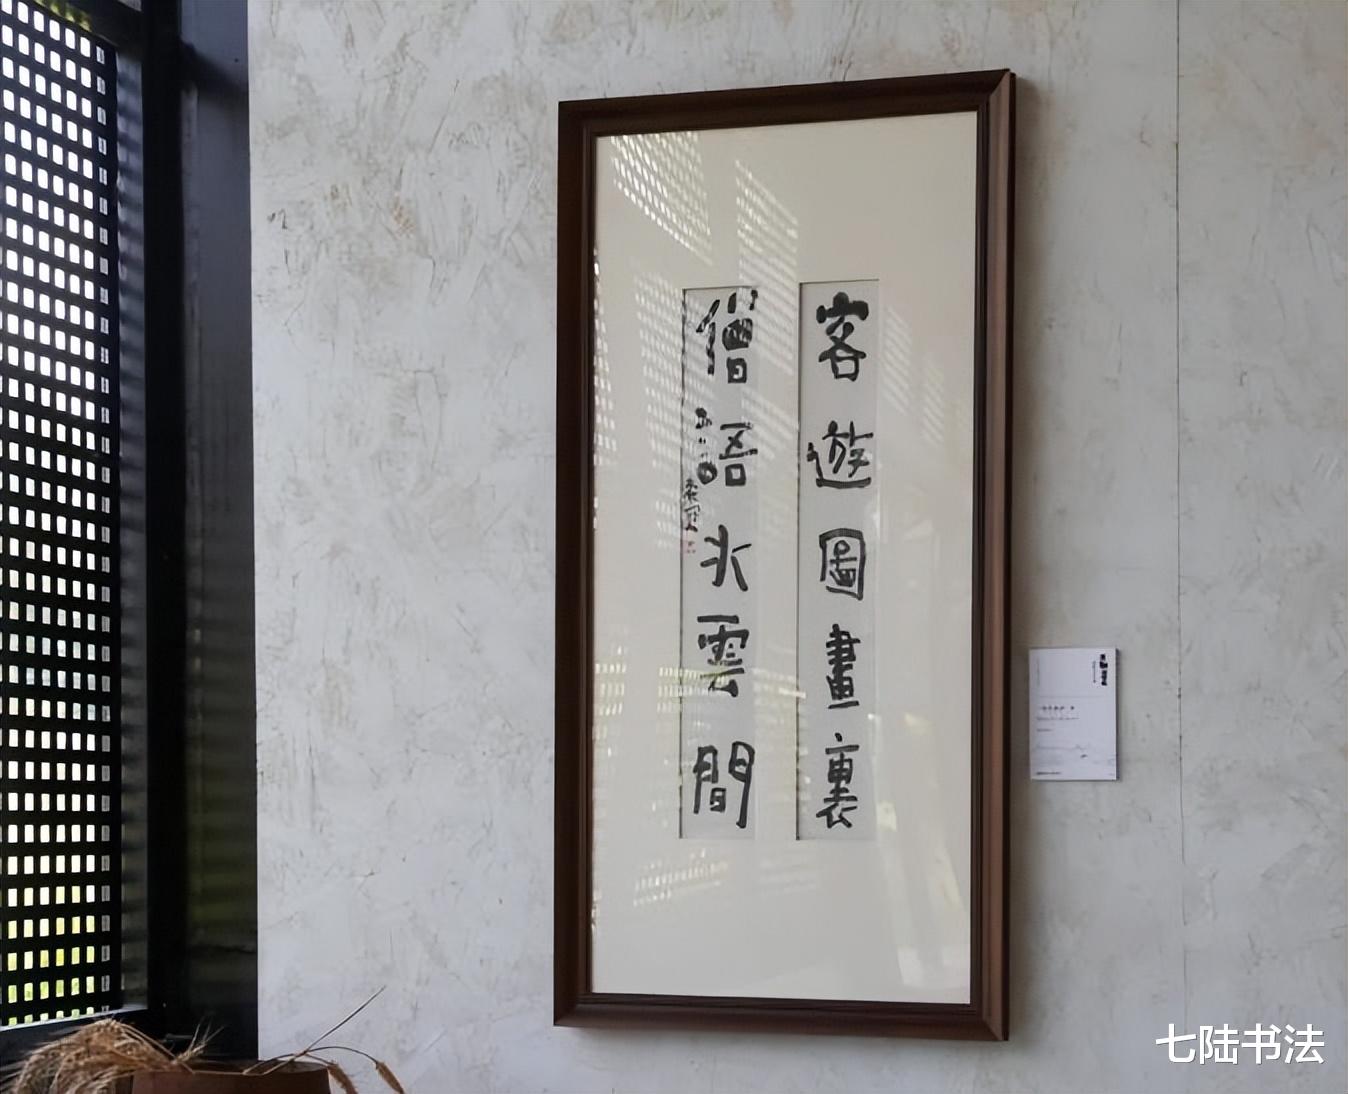 客遊圖畫裏
僧語水雲間
七陆书法